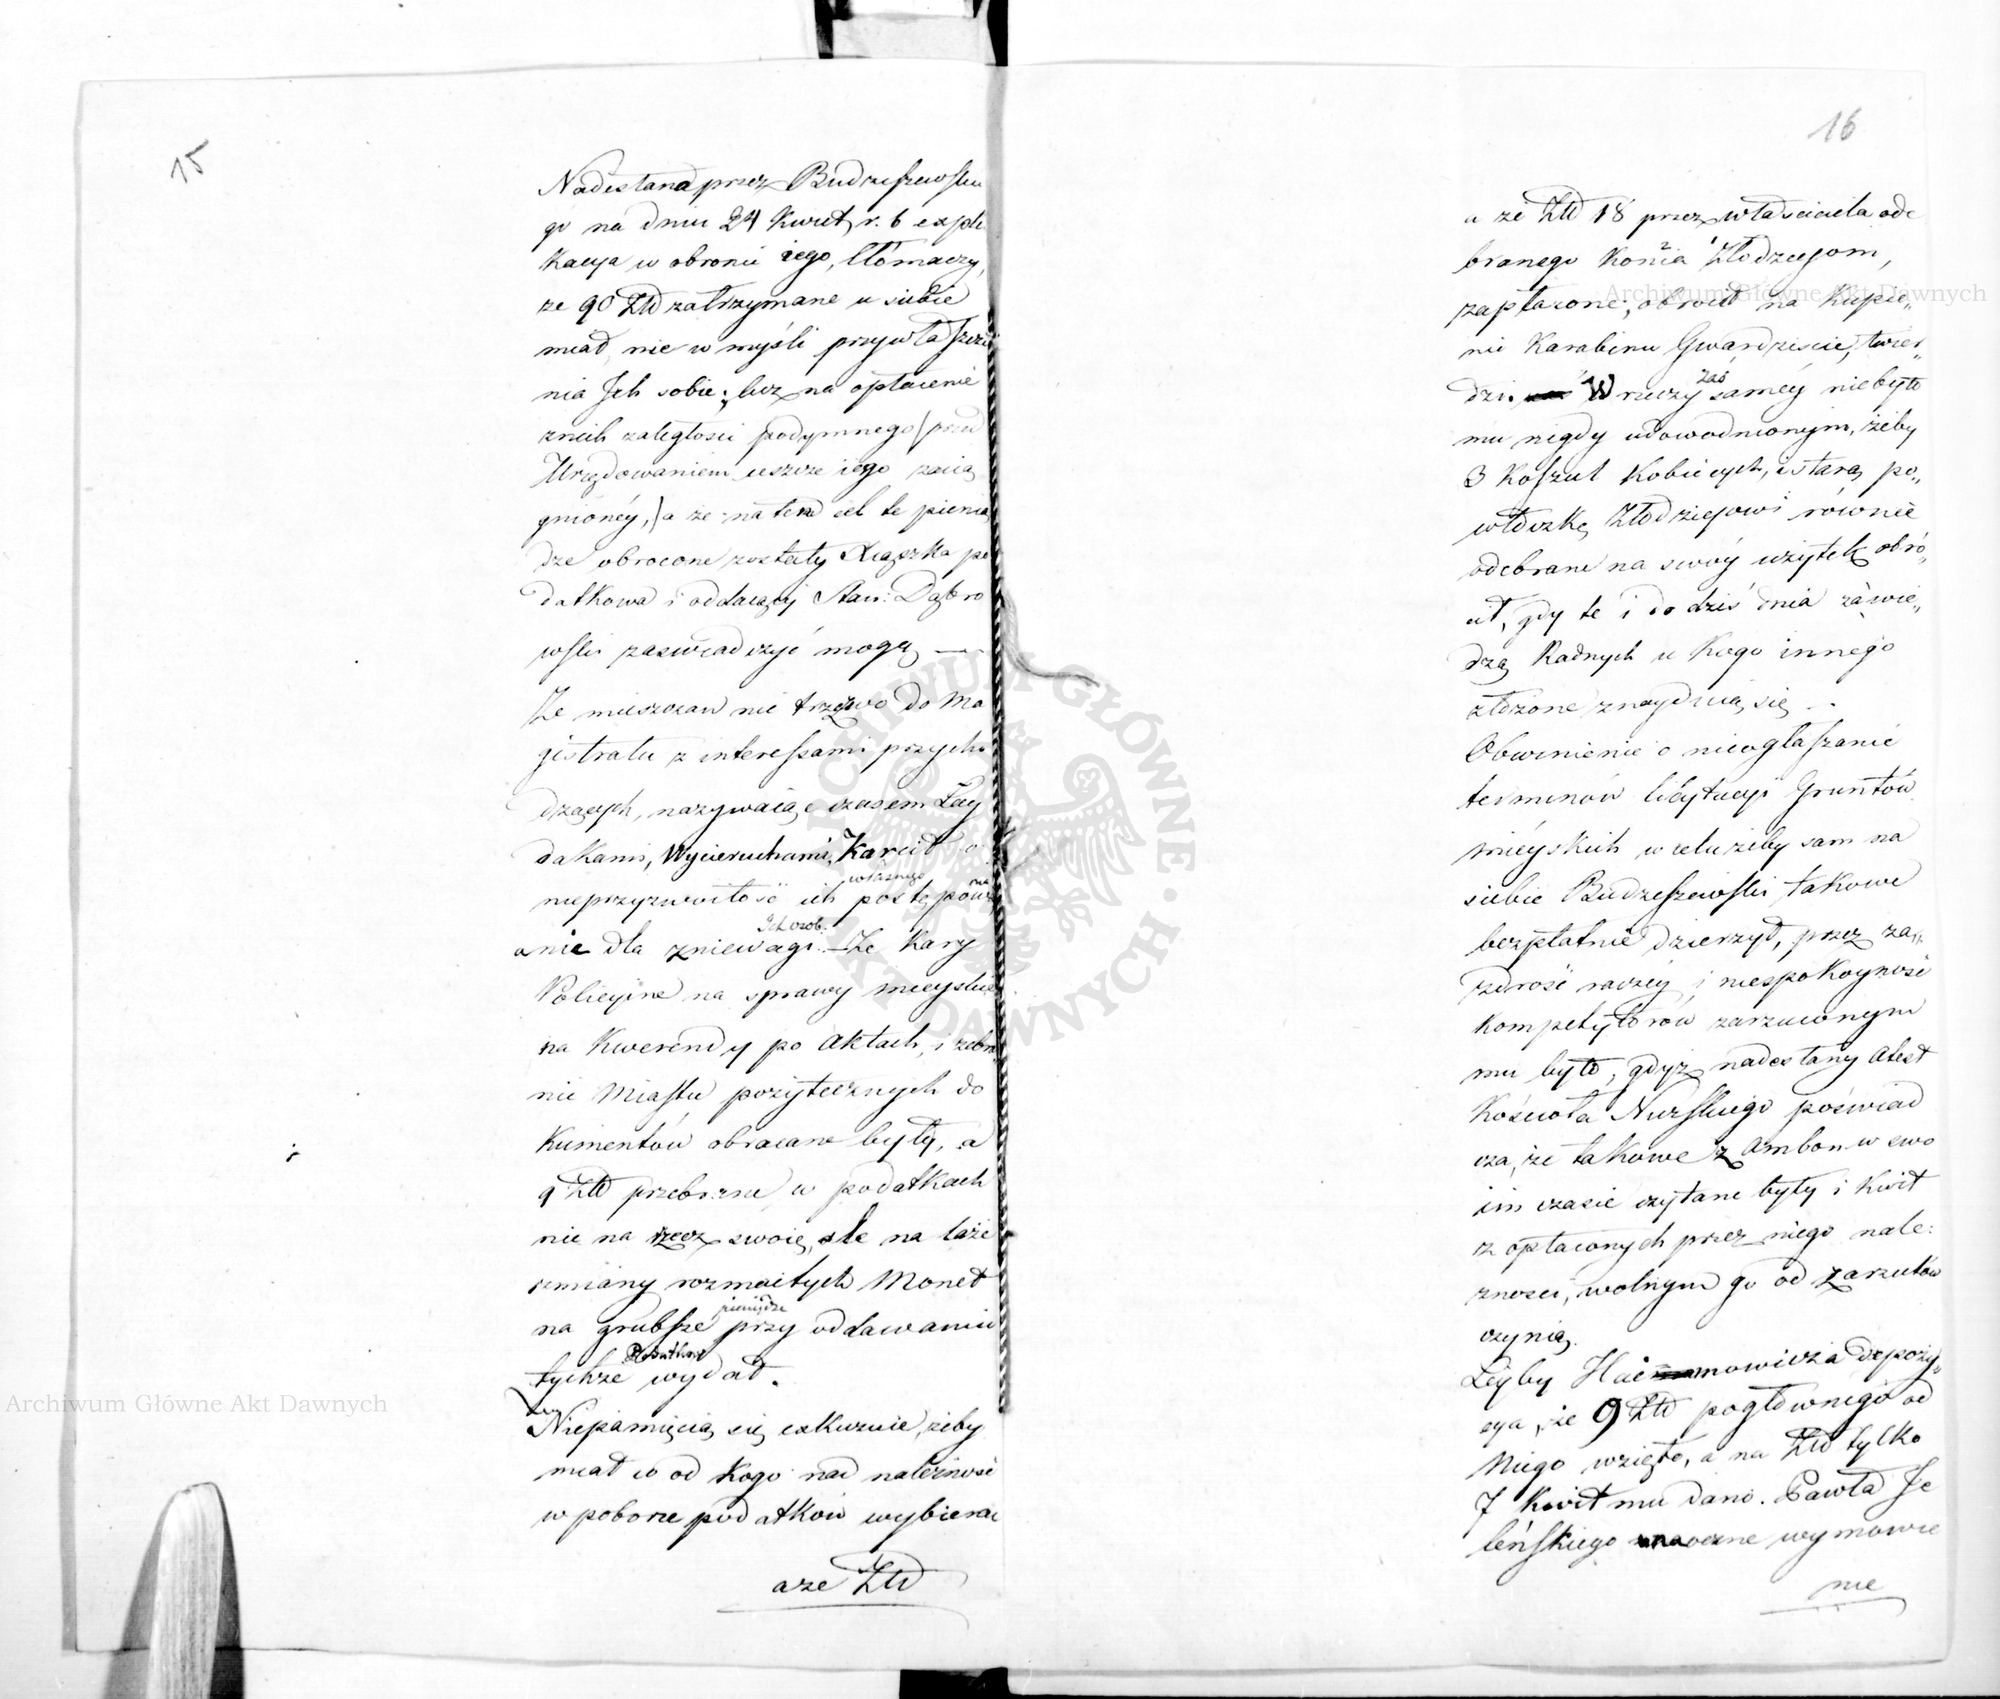 15
Nadesłana przez Budzeszewskie
go na dniu 24 Kwiet, r. b expli
kacya w obronie iego, tłómaczy,
że 90 Złł zatrzymane u siebie
miał, nie w myśli przywłaszcze
nia Ich sobie; lecz na opłacenie
znich zaległości podymnego / przed
Urzędowaniem ieszcze iego zacią
gnioney, / a że na ten cel te pienią
dze obrocone zostały Xiążka po
datkowa i oddaiący Staw: Dąbro
wski zaswiadczyć mogą —
Ze mieszczan nie trzeźwo do Ma
gistratu z interessami przycho
dzących, nazywaiąc czasem Łay
dakami, Wycieruchami, Karcił
własnego
nieprzyzwoitość ich postępowa
Ich osob:
anie dla zniewagi. — Ze Kary
Policyine na sprawy mieyskie
na Kwerendy po Aktach, i zebra
nie Miastu pożytecznych do
kumentów obracane były, a
9 Złł przebrane w podatkach
nie na rzecz swoię, ale na łaże
zmiany rozmaitych Monet
pieniądze
na grubsze przy oddawaniu
Podatków
tychże wydał.
Niepamięcią się exkuzuie, żeby
miał co od Kogo nad należność
w poborze podatków wybierać
aze Złł
16
a że Złł 18 przez właściciela ode
branego Konia Złodzeyom,
zapłacone, obrocił na Kupie„
nie Karabinu Gwardziście, twier„
zaś
dzi. W rzeczy saméy niebyło
mu nigdy udowodnionym, żeby
3 Koszul Kobiecych, i starą po„
włóczkę Złodziejowi równie
odebrane na swóy użytek obró„
cił, gdy te i do dziś dnia za wie„
dzą Radnych u Kogo innego
złożone znayduią się . .
Obwinienie o nieogłaszanie
terminów licytacyi Gruntów
mieyskich w celu żeby sam na
siebie Budzeszewski takowe
bezpłatnie dzierżył, przez za„
zdrość raczey i niespokoyność
Kompetytorów zarzuconym
mu było, gdyż nadesłany Atest
Kościoła Nurskiego poświad
cza, że takowe z Ambon w swo
im czasie czytane były i Kwit
z opłaconych przez niego nale:
żności, wolnym go od zarzutów
czynią.
Leyby Haimowicza depozy„
cya, że 9 Złł pogłównego od
Niego wzięto, a na Złł tylko
7 Kwit mu dano. Pawła Je
leńskiego naoczne wymowie
nie
Archiwum Główne Akt Dawnych
Archiwum Główne Akt Dawnych
ARCHIWUM GŁÓWNE · AKT DAWNYCH ·